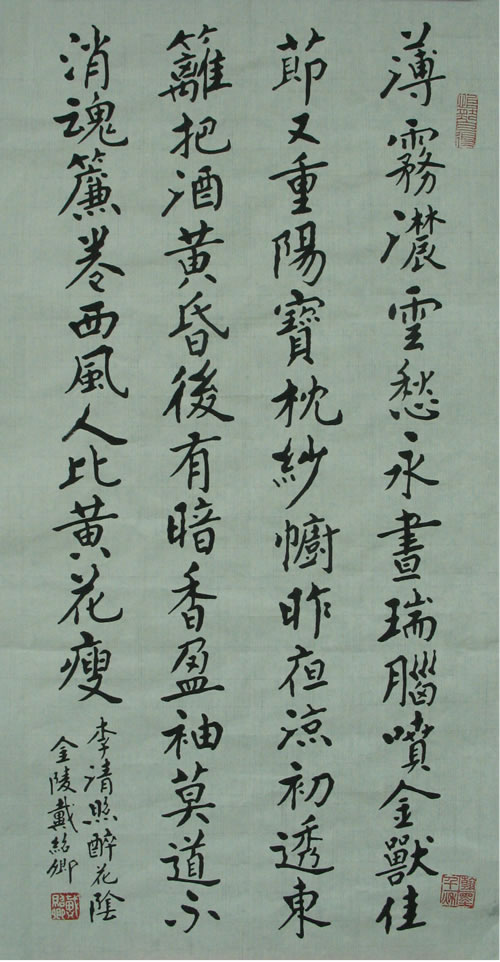 薄霧濃雲愁永晝瑞腦噴金獸佳
節又重陽寶枕紗幮昨夜涼初透東
籬把酒黃昏後有暗香盈袖莫道不
消魂簾卷西風人比黃花瘦
李清照醉花陰
金陵戴紹卿